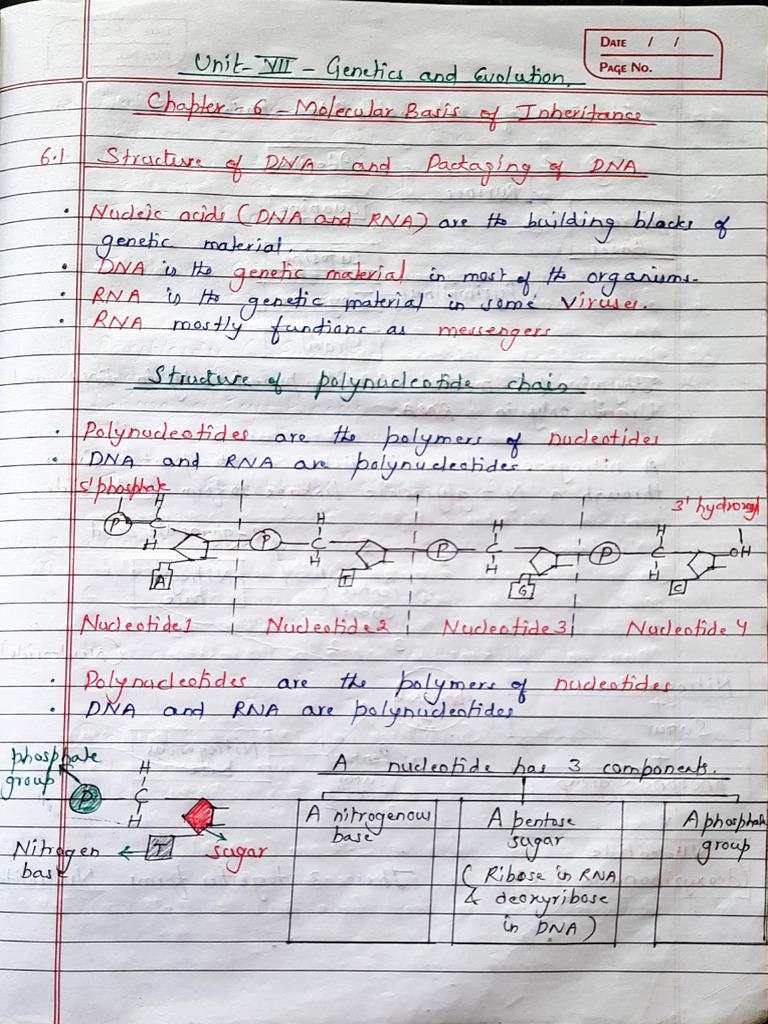 DATE / /
PAGE NO.
Unit-VII - Genetics and Evolution.
Chapter-6 - Molecular Basis of Inheritance
6.1 Structure of DNA and Packaging of DNA
• Nucleic acids (DNA and RNA) are the building blocks of
genetic material.
• DNA is the genetic material in most of the organisms.
• RNA is the genetic material in some viruses.
• RNA mostly functions as messengers
Structure of polynucleotide chain
• Polynucleotides are the polymers of nucleotides
• DNA and RNA are polynucleotides.
5' phosphate
3' hydroxyl
H H H H
P C P C P C P C OH
H H H H
A T G C
Nucleotide 1 Nucleotide 2 Nucleotide 3 Nucleotide 4
• Polynucleotides are the polymers of nucleotides
• DNA and RNA are polynucleotides
phosphate
group
H
P C
H
T
Nitrogen
base
sugar
A nucleotide has 3 components.
A nitrogenous
base
A pentose
sugar
( Ribose in RNA
& deoxyribose
in DNA )
A phosphate
group